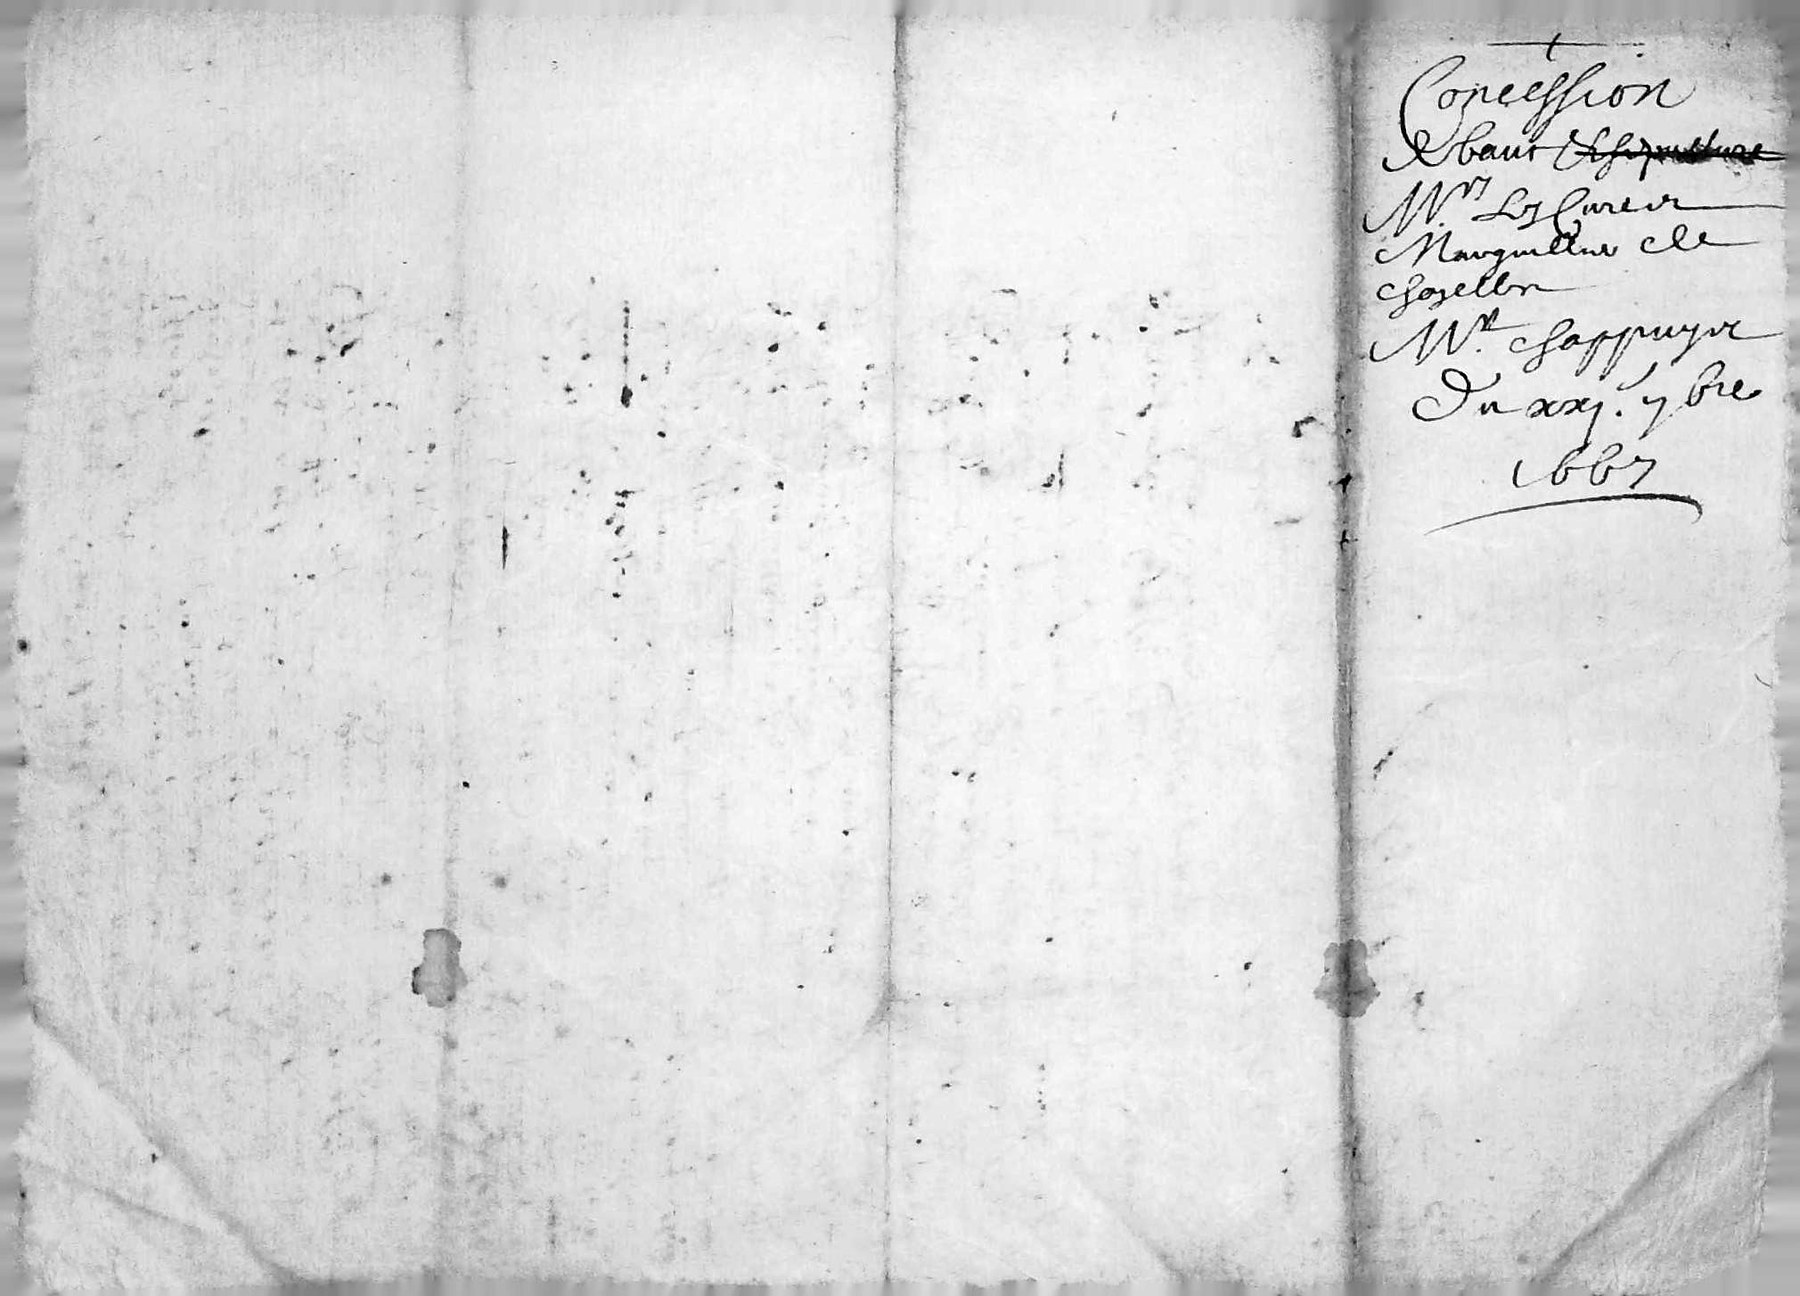 Concession
de banc & sepulture
Mrs. Les Cure et
Marguillier de
chazelles
Mr. chappuyer
Du xxj. 7bre
1667